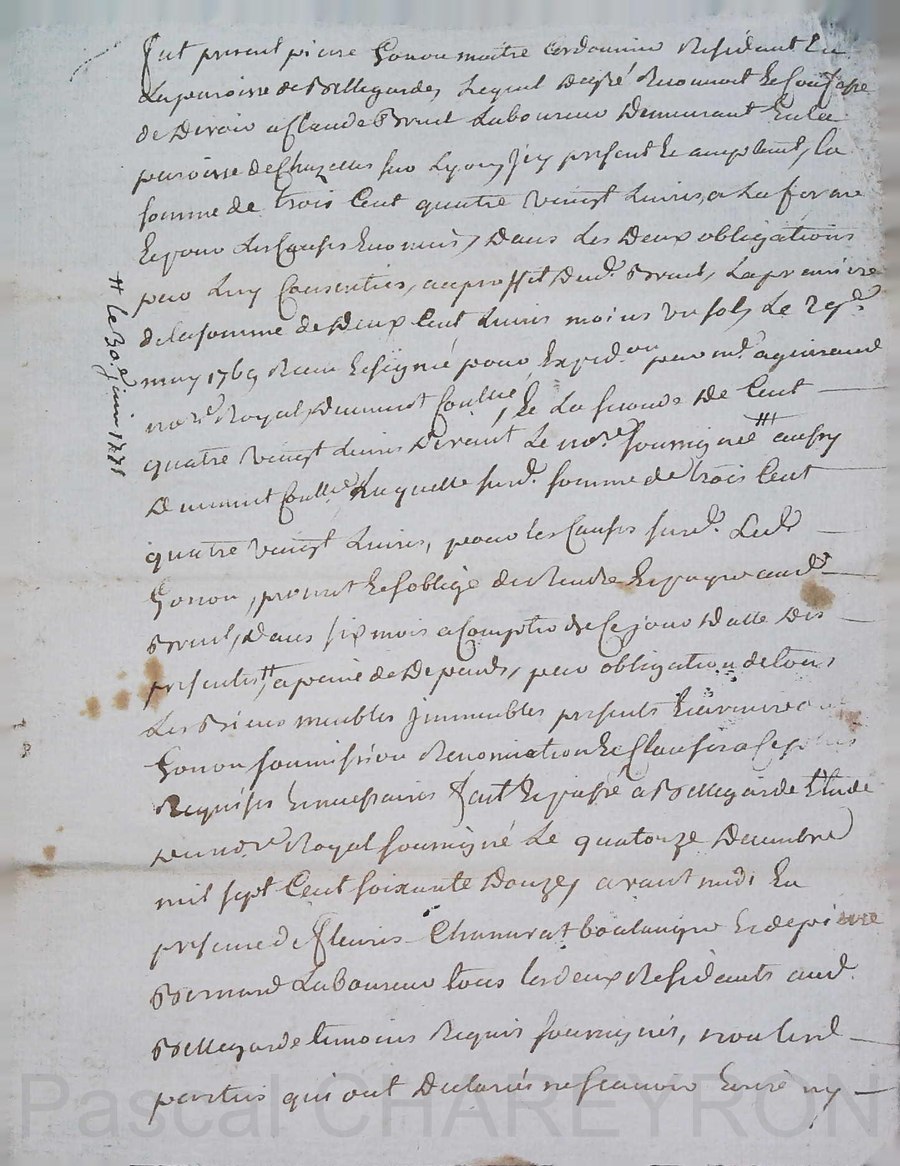 fut present pierre Gonon maitre Cordonnier Residant En
La paroisse de Bellegarde, Lequel De gré Reconnoit Et Confesse
de Devoir a Claude Bruel Laboureur Demeurant En la
paroisse de Chazelles sur Lyon, jcy present Et acceptant, la
somme de trois Cent quatre vingt Livres, a La forme
Et pour Les Causes Enoncées, Dans Les Deux obligations
par Luy Consenties, au proffit Dud. Bruel, La premiere
de la somme de Deux Cent Livres moins un sol, Le 29e.
may 1769 Recue Et signé pour Expédon par me.
nore. Royal, Deument Conllée, Et La seconde De Cent
quatre vingt Livres Devant Le nore. soussigné aussy
Deument Conllée Laquelle susd. somme de trois Cent
quatre vingt Livres, pour les Causes susd. Led.
Gonon, promet Et s'oblige de Rendre Et payer aud.
Bruel, Dans six mois a Compter de Ce jour Datte Des
presentes, a peine de Depends, par obligation de tous
Les Biens meubles jmmeubles presents Et avenir
Gonon soumission Renonciation Et Clauses a Ce
Requises Et necessaires fait Et passé a Bellegarde Etude
du nore. Royal soussigné Le quatorze Decembre
mil sept Cent soixante Douze, avant midi En
presence de fleurie boulanger Et de pierre
Bernard Laboureur tous Les deux Residants aud.
Bellegarde temoins Requis soussignés, non Lesd.
parties qui ont Declarés ne scavoir Ecrire ny
# Le 30e juin 1771
Pascal CHAREYRON